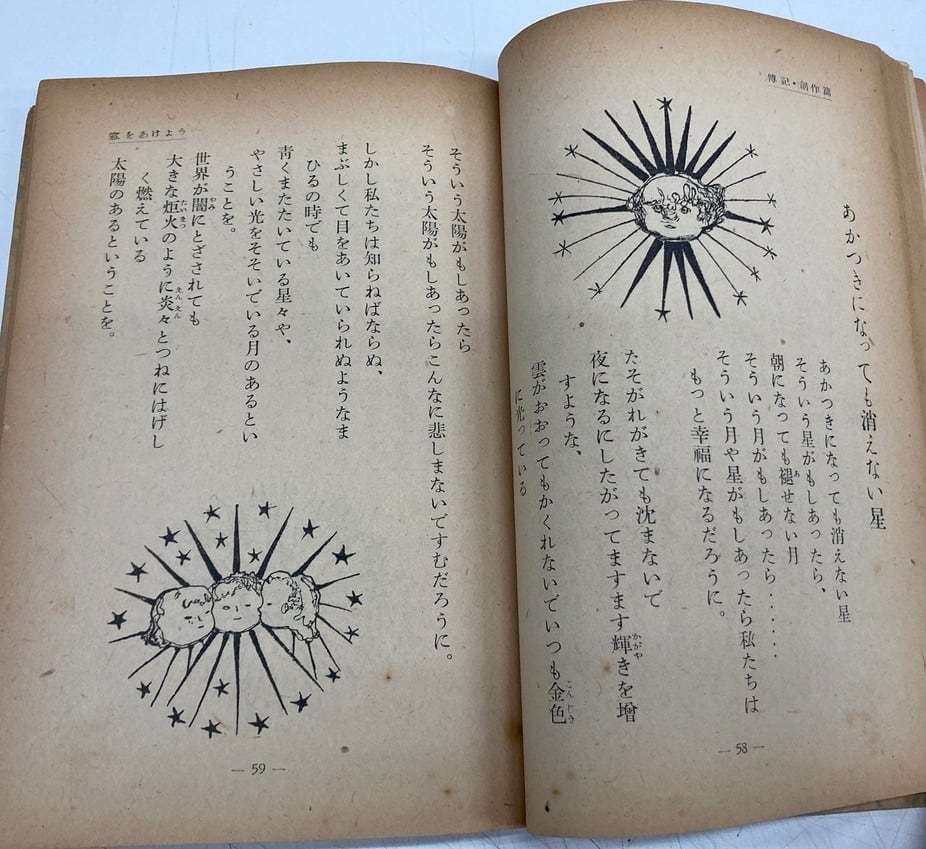 傳記・創作篇
あかつきになっても消えない星
あかつきになっても消えない星
そういう星がもしあったら、
朝になっても褪せない月
あ
そういう月がもしあったら......
そういう月や星がもしあったら私たちは
もっと幸福になるだろうに。
たそがれがきても沈まないで
夜になるにしたがってますます輝きを增
かがや
すような、
雲がおおってもかくれないでいつも金色
こんじき
に光っている
— 58 —
窓をあけよう
そういう太陽がもしあったら
そういう太陽がもしあったらこんなに悲しまないですむだろうに。
しかし私たちは知らねばならぬ、
まぶしくて目をあいていられぬようなま
ひるの時でも
靑くまたたいている星々や、
やさしい光をそそいでいる月のあるとい
うことを。
世界が闇にとざされても
やみ
大きな炬火のように炎々とつねにはげし
たいまつ
えんえん
く燃えている
太陽のあるということを。
— 59 —